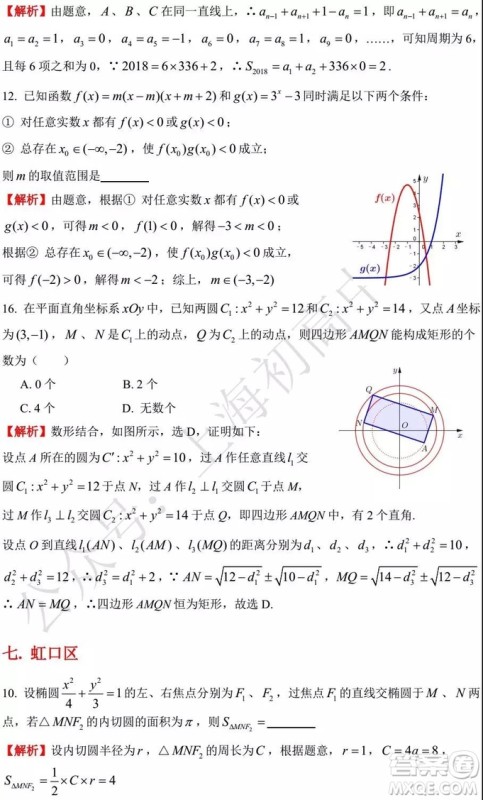 【解析】由题意，A、B、C 在同一直线上，∴ a_{n-1} + a_{n+1} + 1 - a_n = 1，即 a_{n-1} + a_{n+1} = a_n，
a_1 = a_2 = 1，a_3 = 0，a_4 = a_5 = -1，a_6 = 0，a_7 = a_8 = 1，a_9 = 0，……，可知周期为 6，
且每 6 项之和为 0，∵ 2018 = 6×336 + 2，∴ S_{2018} = a_1 + a_2 + 336×0 = 2 .
12. 已知函数 f(x) = m(x - m)(x + m + 2) 和 g(x) = 3^x - 3 同时满足以下两个条件：
① 对任意实数 x 都有 f(x) < 0 或 g(x) < 0；
② 总存在 x_0 ∈ (-∞, -2)，使 f(x_0)g(x_0) < 0 成立；
则 m 的取值范围是________
【解析】由题意，根据① 对任意实数 x 都有 f(x) < 0 或
g(x) < 0，可得 m < 0，f(1) < 0，解得 -3 < m < 0；
根据② 总存在 x_0 ∈ (-∞, -2)，使 f(x_0)g(x_0) < 0 成立，
可得 f(-2) > 0，解得 m < -2；综上，m ∈ (-3, -2)
f(x)
g(x)
y
x
-5 -4 -3 -2 -1 1 2 3
16. 在平面直角坐标系 xOy 中，已知两圆 C_1 : x^2 + y^2 = 12 和 C_2 : x^2 + y^2 = 14，又点 A 坐标
为 (3, -1)，M 、N 是 C_1 上的动点，Q 为 C_2 上的动点，则四边形 AMQN 能构成矩形的个
数为（ ）
A. 0 个 B. 2 个
C. 4 个 D. 无数个
【解析】数形结合，如图所示，选 D，证明如下：
设点 A 所在的圆为 C′ : x^2 + y^2 = 10，过 A 作任意直线 l_1 交
圆 C_1 : x^2 + y^2 = 12 于点 N，过 A 作 l_2 ⊥ l_1 交圆 C_1 于点 M，
过 M 作 l_3 ⊥ l_2 交圆 C_2 : x^2 + y^2 = 14 于点 Q，即四边形 AMQN 中，有 2 个直角.
y
Q
M
N
O
A
x
设点 O 到直线 l_1(AN) 、l_2(AM) 、l_3(MQ) 的距离分别为 d_1、d_2 、d_3，∴ d_1^2 + d_2^2 = 10，
d_2^2 + d_3^2 = 12，∴ d_3^2 = d_1^2 + 2，∵ AN = √(12 - d_1^2) ± √(10 - d_1^2)，MQ = √(14 - d_3^2) ± √(12 - d_3^2)
∴ AN = MQ，∴四边形 AMQN 恒为矩形，故选 D.
公众号：上海初高中
七. 虹口区
10. 设椭圆 x^2/4 + y^2/3 = 1 的左、右焦点分别为 F_1 、F_2，过焦点 F_1 的直线交椭圆于 M 、N 两
点，若△MNF_2 的内切圆的面积为 π，则 S_{△MNF_2} = ________
【解析】设内切圆半径为 r，△MNF_2 的周长为 C，根据题意，r = 1，C = 4a = 8，
S_{△MNF_2} = 1/2 × C × r = 4
答案圈
MXQE.COM